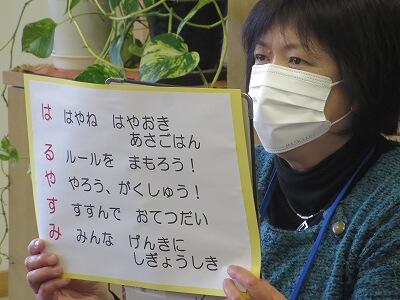 は はやね はやおき
あさごはん
る ルールを まもろう!
や やろう、がくしゅう!
す すすんで おてつだい
み みんな げんきに
しぎょうしき